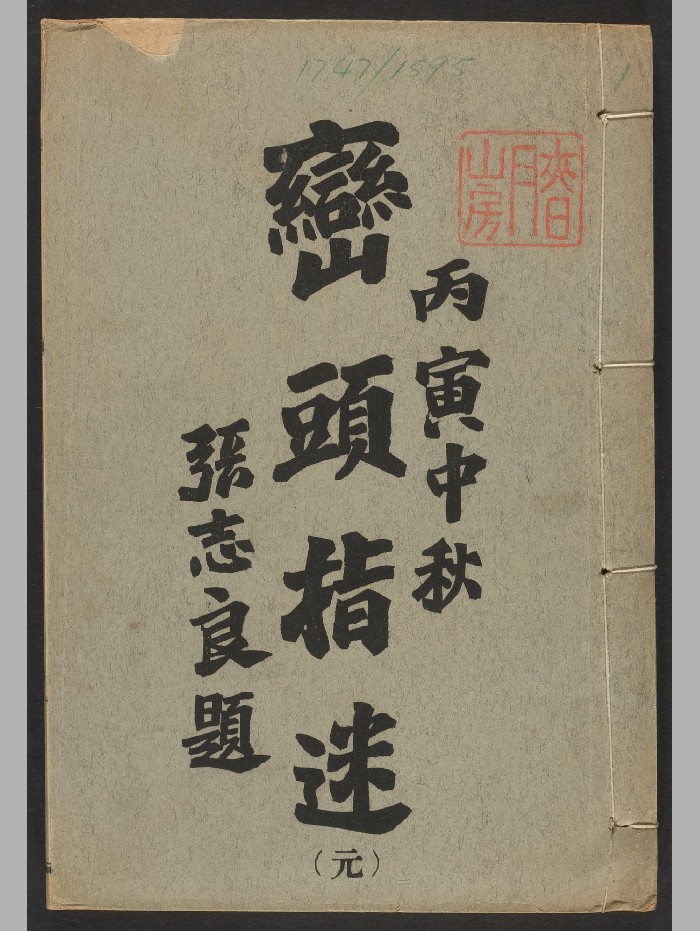 1747/1595
1
春月
山房
丙寅中秋
巒頭指迷
(元)
張志良題